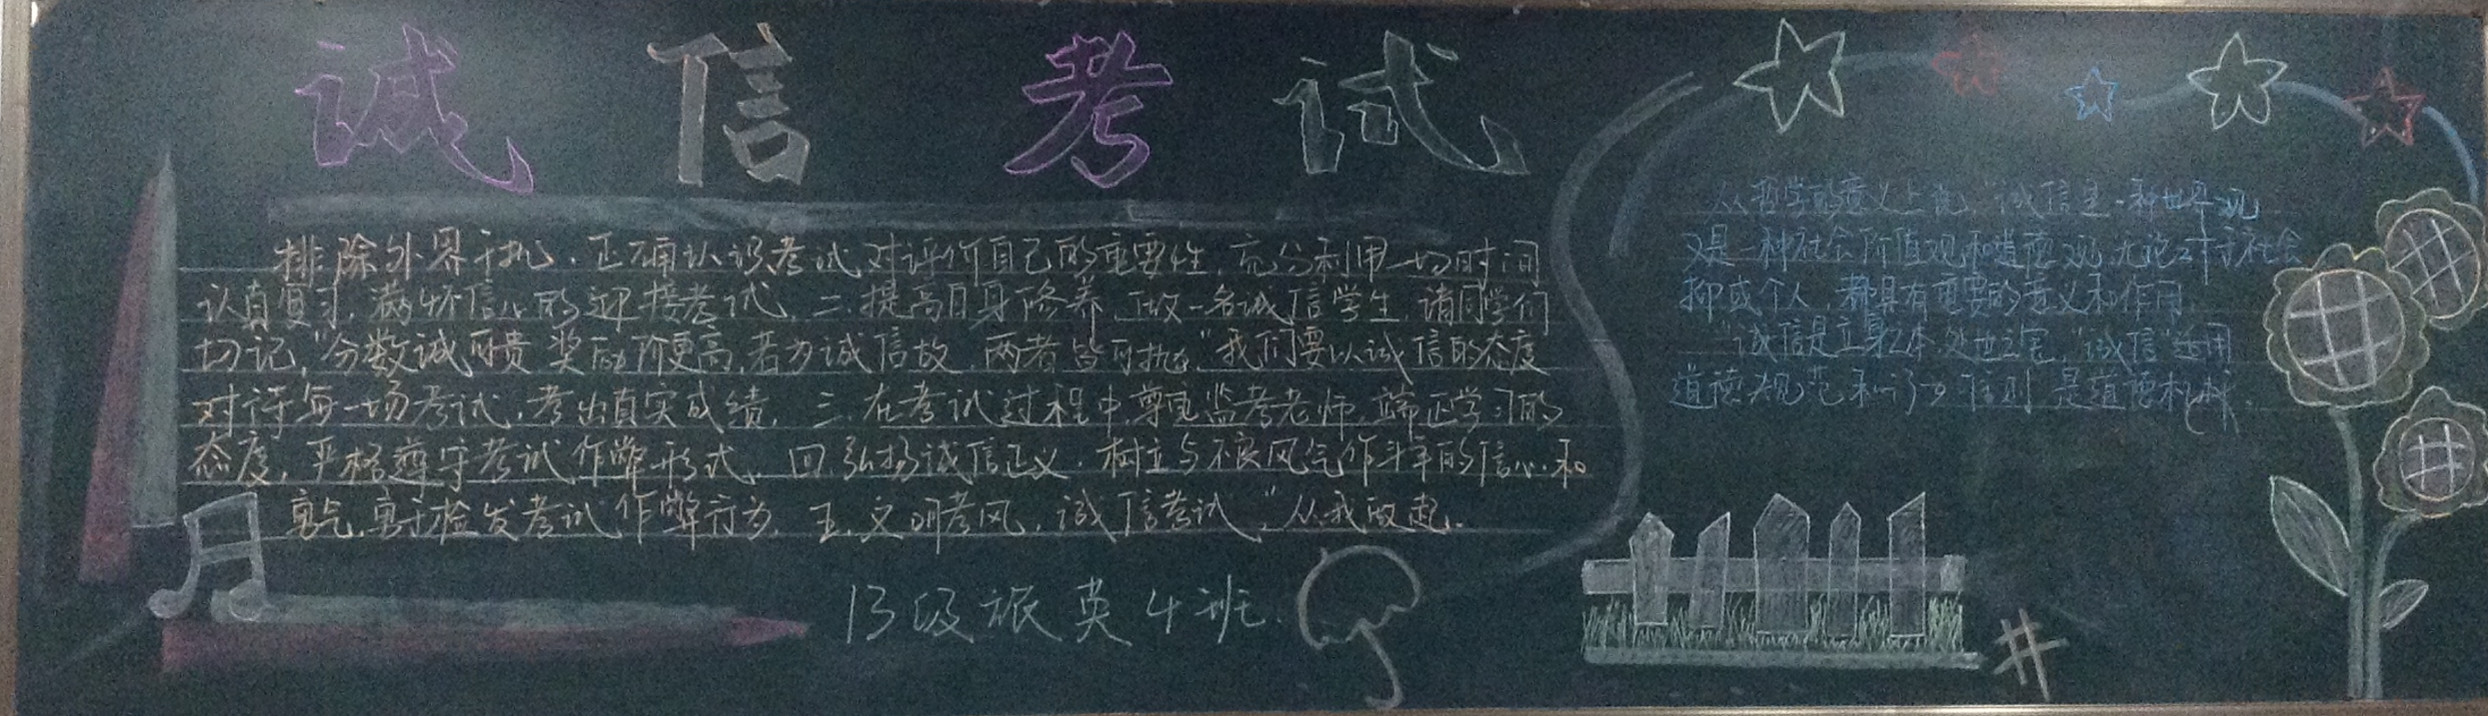 诚信考试
排除外界干扰，正确认识考试对评价自己的重要性，充分利用一切时间
认真复习，满怀信心的迎接考试，二.提高自身修养，做一名诚信学生，请同学们
切记，“分数诚可贵 奖励价更高，若为诚信故，两者皆可抛。”我们要以诚信的态度
对待每一场考试，考出真实成绩，三.在考试过程中尊重监考老师，端正学习的
态度，严格遵守考试作弊形式，四.弘扬诚信正义，树立与不良风气作斗争的信心和
勇气，勇于检发考试作弊行为，五.文明考风，诚信考试“，从我做起。
13级旅英4班
从哲学的意义上说，“诚信是一种世界观
又是一种社会价值观和道德观，无论对于社会
抑或个人，都具有重要的意义和作用
“诚信是立身之本，处世之宝，“诚信”适用
道德规范和行为准则 是道德